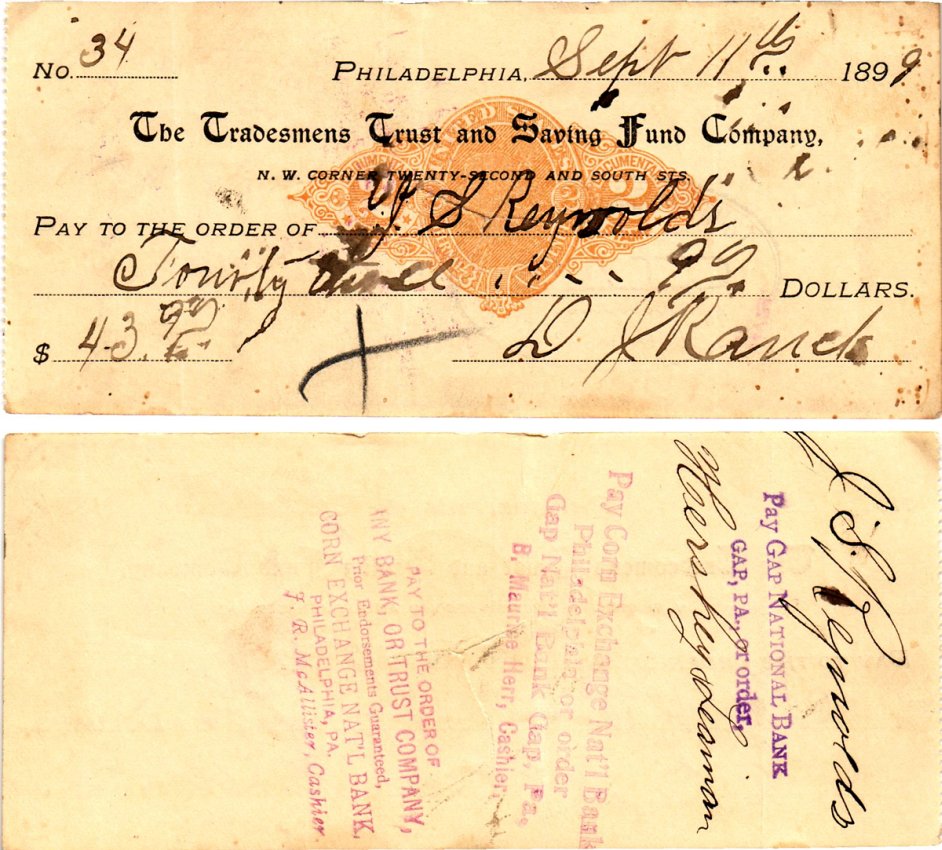 No. 34
PHILADELPHIA, Sept 11th 1899
The Tradesmens Trust and Saving Fund Company,
N. W. CORNER TWENTY-SECOND AND SOUTH STS.
PAY TO THE ORDER OF J S Reynolds
Fourty three 99 DOLLARS.
$ 43.99
D J Ranck
J. S. Reynolds
Pay GAP NATIONAL BANK
GAP, PA., or order,
Hershey
Pay Corn Exchange Nat'l Bank
Philadelphia or order
Gap Nat'l Bank Gap, Pa.
B. Maurice Herr, Cashier.
PAY TO THE ORDER OF
ANY BANK, OR TRUST COMPANY,
Prior Endorsements Guaranteed,
CORN EXCHANGE NAT'L BANK,
PHILADELPHIA, PA.
J. R. McAllister, Cashier